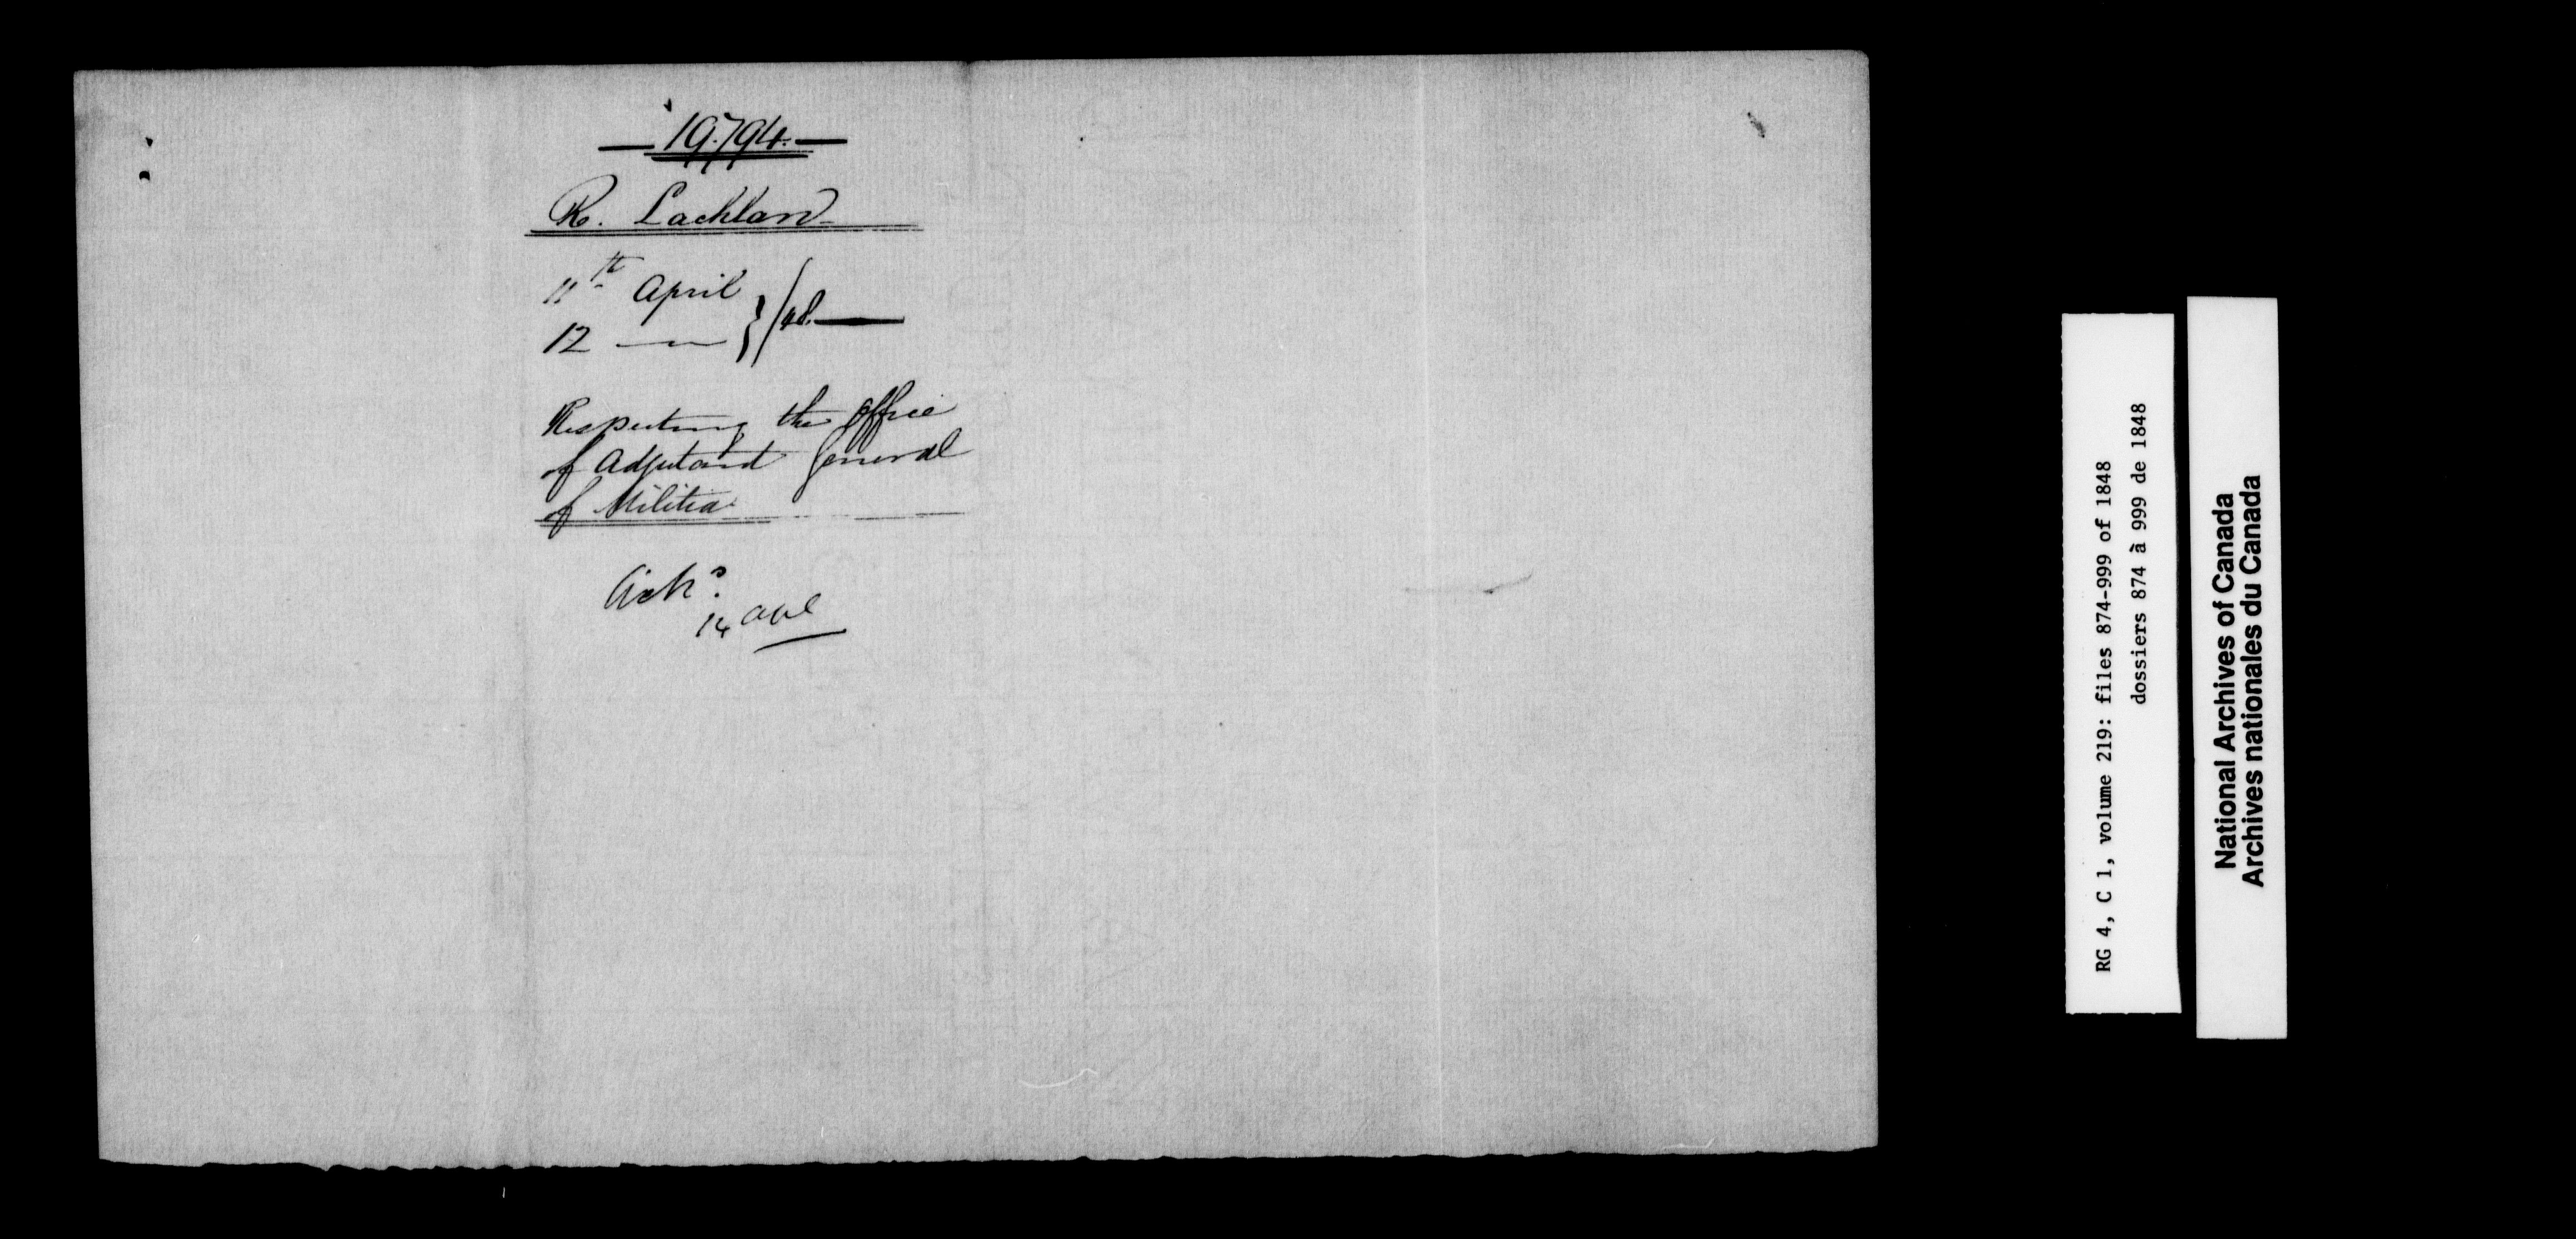 19.794.
R. Lachlan
11th April
12 —— } /48.
Respecting the Office
of Adjutant General
of Militia
Ackd.
14 Apl
RG 4, C 1, volume 219: files 874-999 of 1848
dossiers 874 à 999 de 1848
National Archives of Canada
Archives nationales du Canada